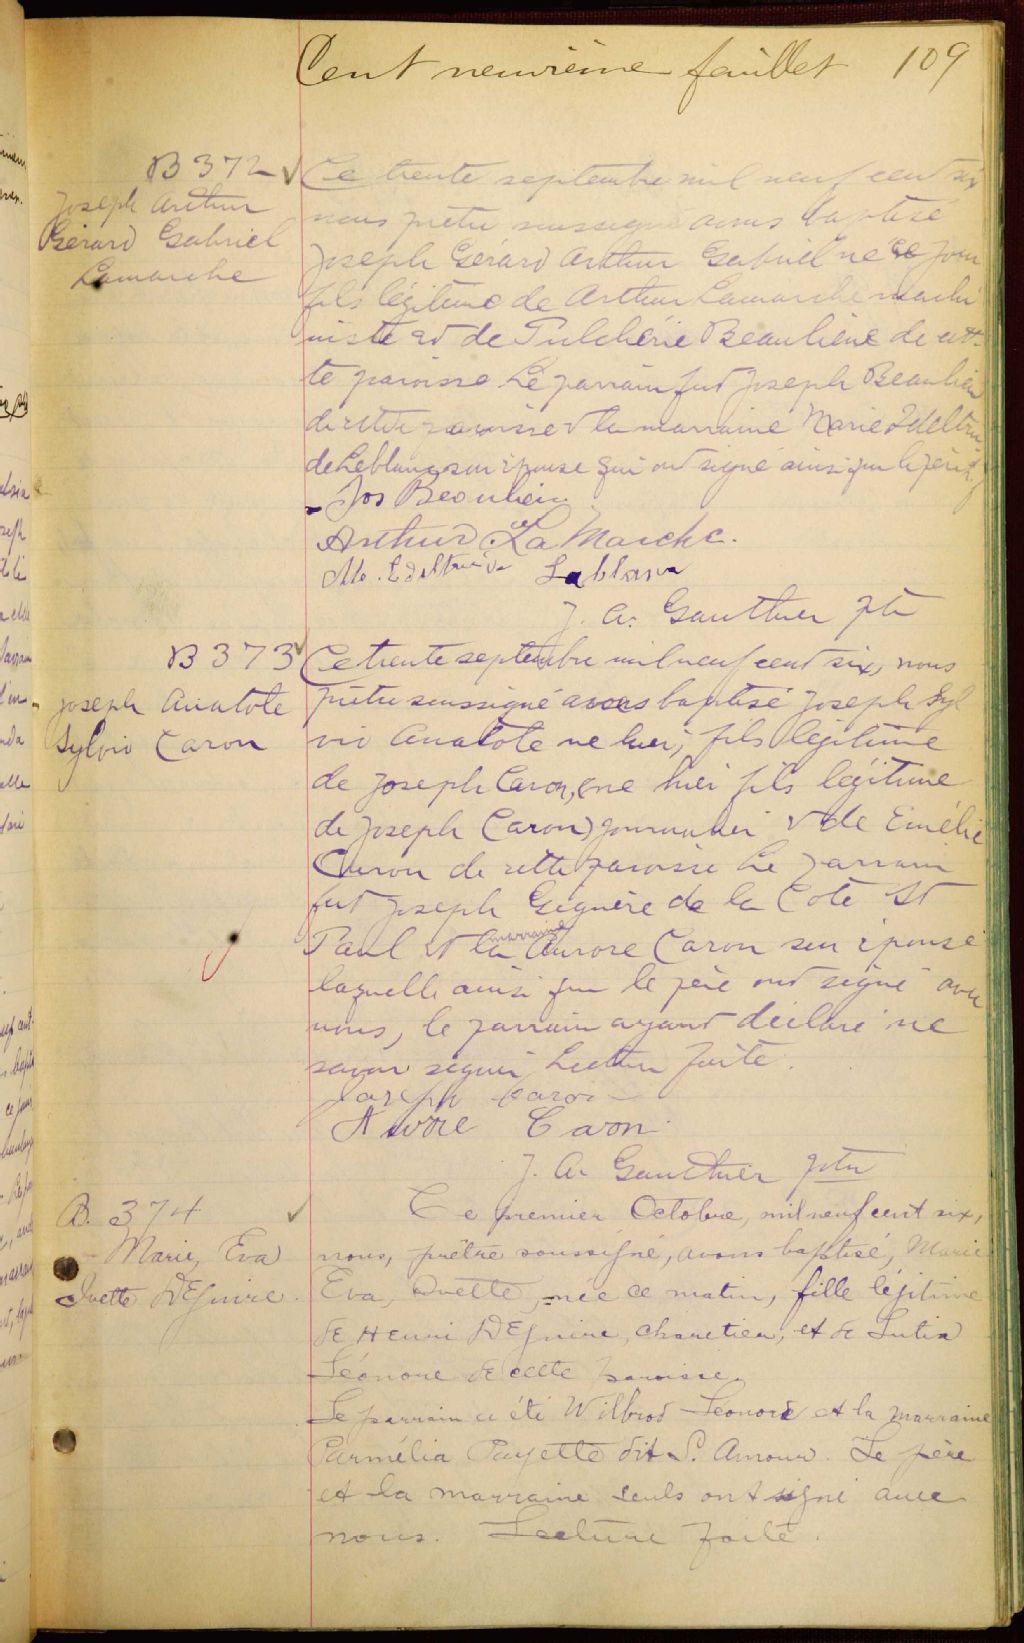 Cent neuvième feuillet 109
B 372
Joseph Arthur
Gérard Gabriel
Lamarche
Ce trente septembre mil neuf cent six
nous prêtre soussigné avons baptisé
Joseph Gérard Arthur Gabriel né ce jour
fils légitime de Arthur Lamarche machi
niste et de Pulchérie Beaulieu de cet-
te paroisse Le parrain fut Joseph Beaulieu
de cette paroisse & la marraine Marie Edeltru
de Leblanc son épouse qui ont signé ainsi que le père
Jos Beaulieu
Arthur LaMarche.
Me. Edeltrude Leblanc
J. A. Gauthier ptr
B 373
Joseph Anatole
Sylvio Caron
Ce trente septembre mil neuf cent six, nous
prêtre soussigné avons baptisé Joseph Syl
vio Anatole né hier, fils légitime
de Joseph Caron, (né hier fils légitime
de Joseph Caron) journalier & de Emélie
Caron de cette paroisse Le parrain
fut Joseph Giguère de la Côte St
Paul & la marraine Aurore Caron son épouse
laquelle ainsi que le père ont signé avec
nous, le parrain ayant déclaré ne
savoir signer. Lecture faite.
Joseph Caron
Aurore Caron
J. A. Gauthier ptr
B. 374
Marie, Eva
Yvette DEguire.
Ce premier Octobre, mil neuf cent six,
nous, prêtre soussigné, avons baptisé, Marie
Eva, Yvette, née ce matin, fille légitime
de Henri DEguire, charretier, et de
Léonore de cette paroisse.
Le parrain a été Wilbrod Léonore et la marraine
Parmélia Payette dit St. Amour. Le père
et la marraine seuls ont signé avec
nous. Lecture faite.